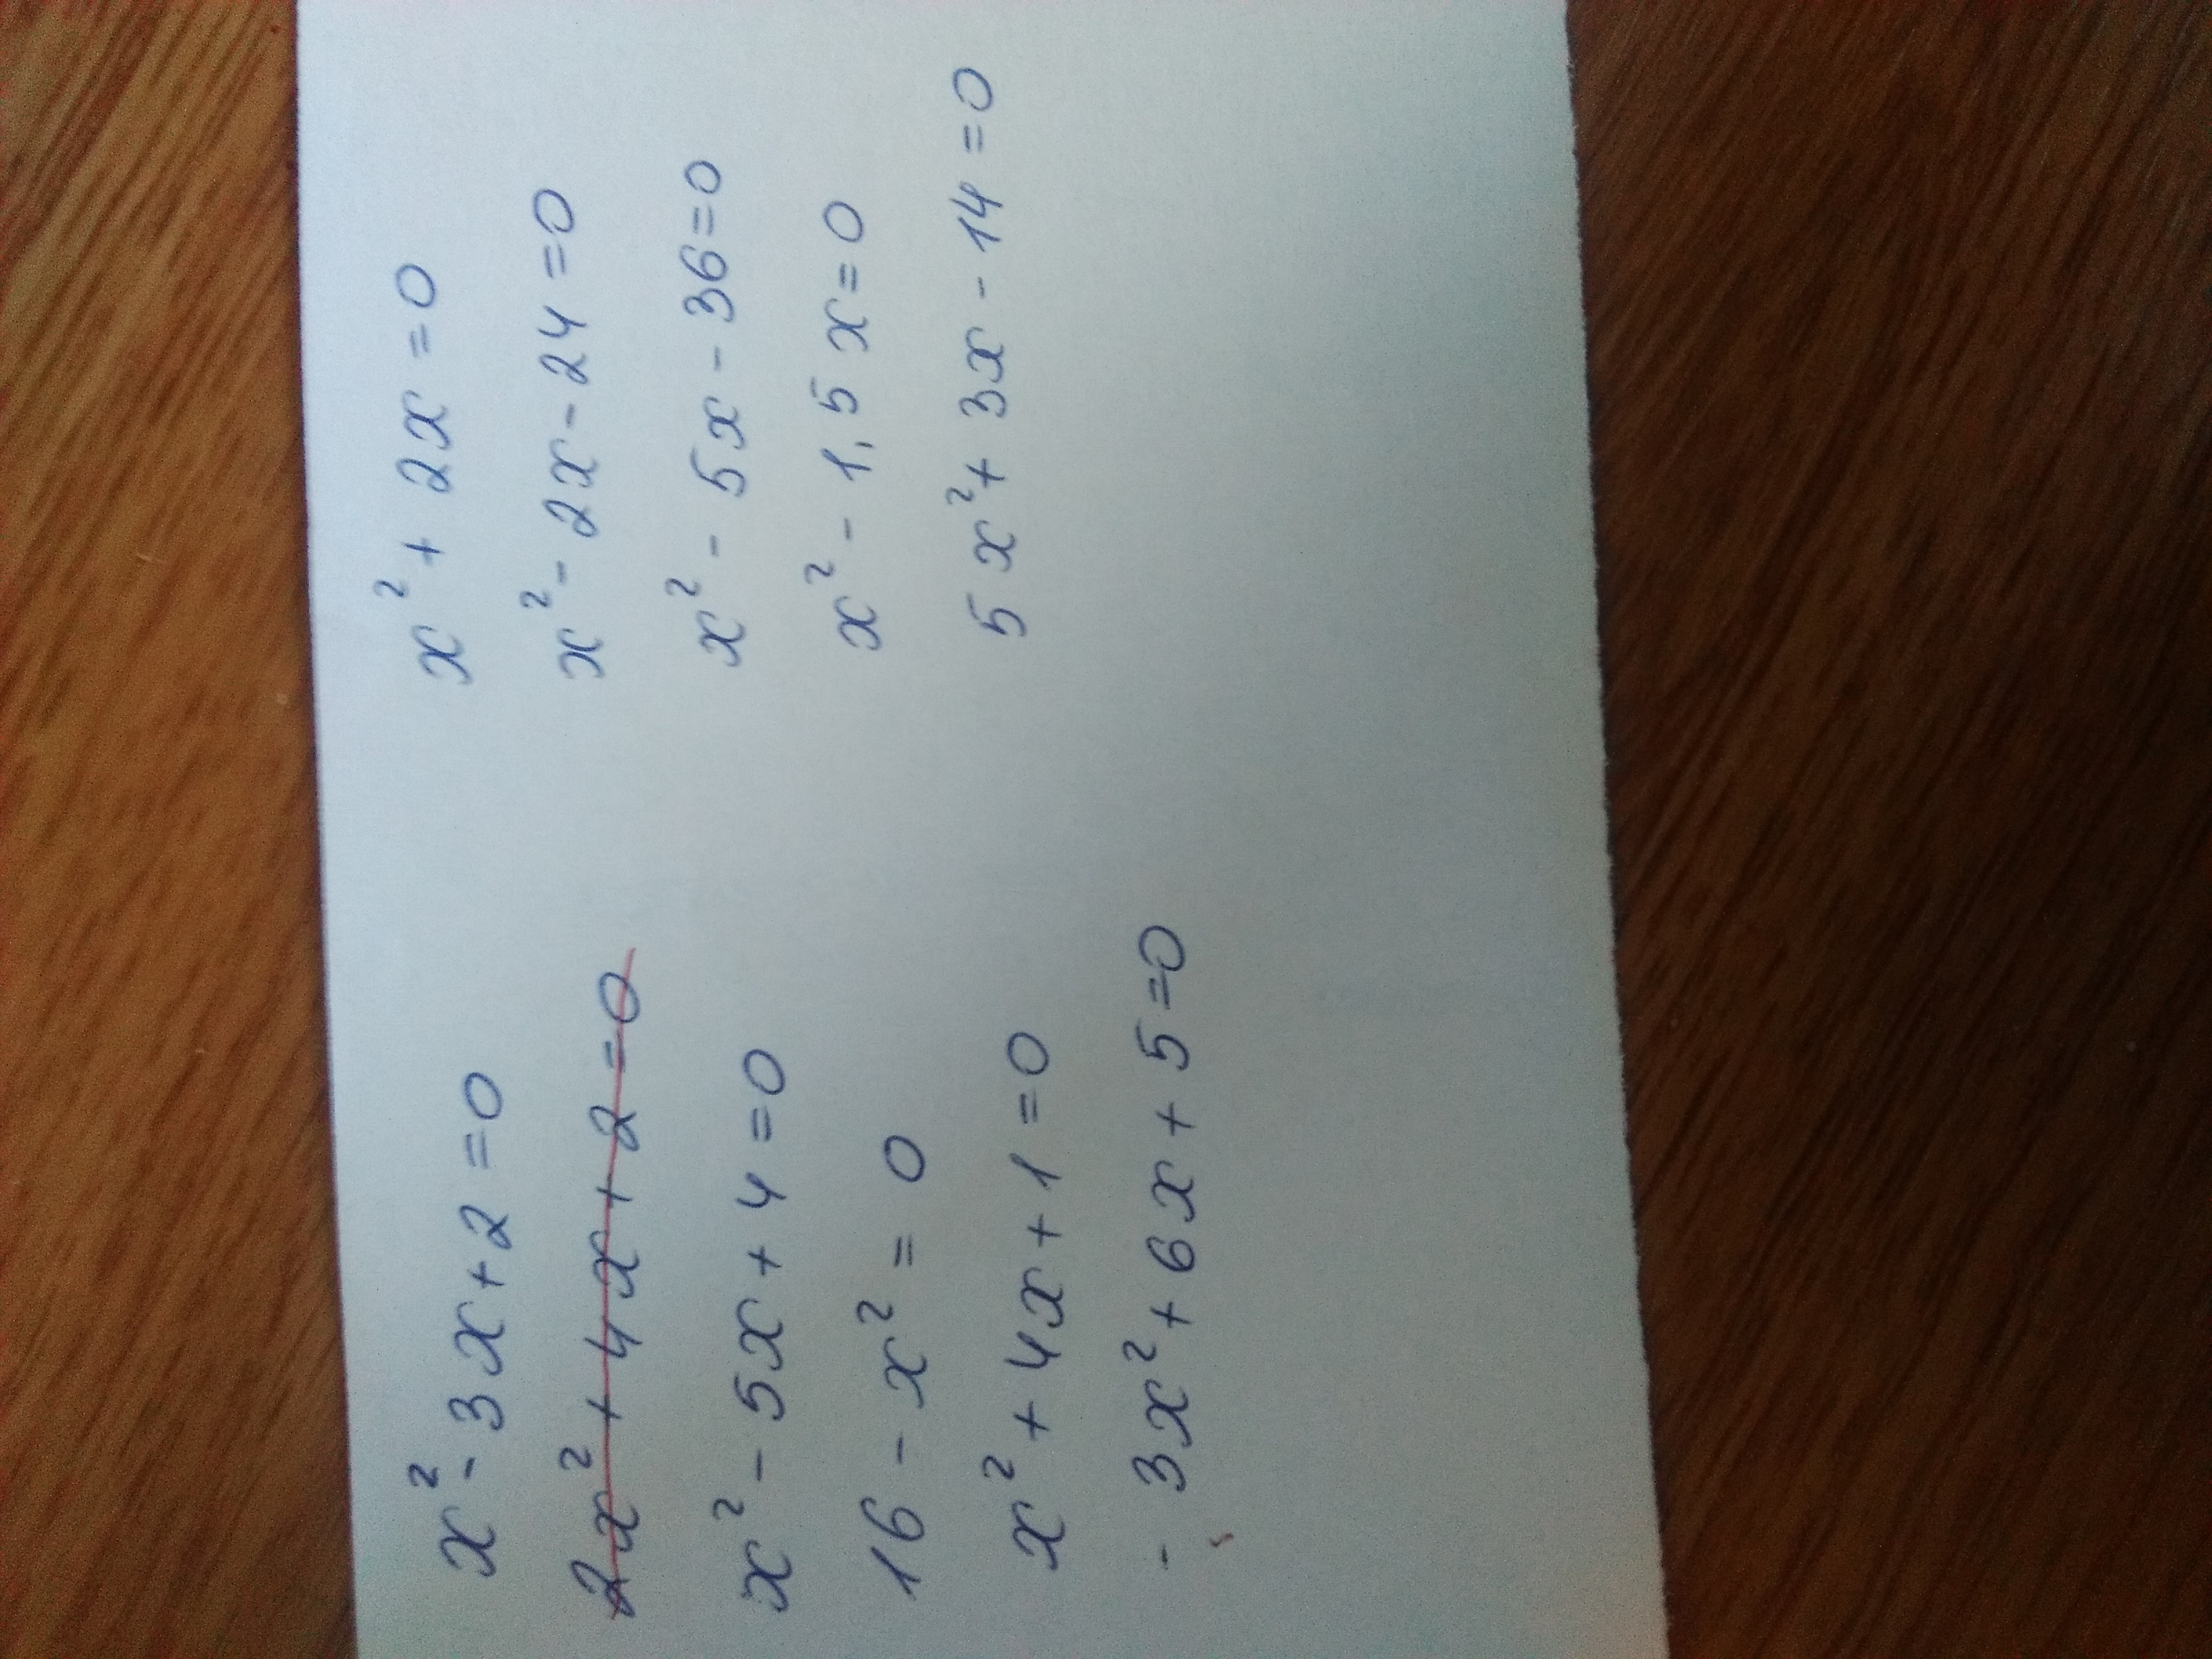 x² - 3x + 2 = 0
2x² + 4x + 2 = 0
x² - 5x + 4 = 0
16 - x² = 0
x² + 4x + 1 = 0
- 3x² + 6x + 5 = 0
x² + 2x = 0
x² - 2x - 24 = 0
x² - 5x - 36 = 0
x² - 1,5x = 0
5x² + 3x - 14 = 0